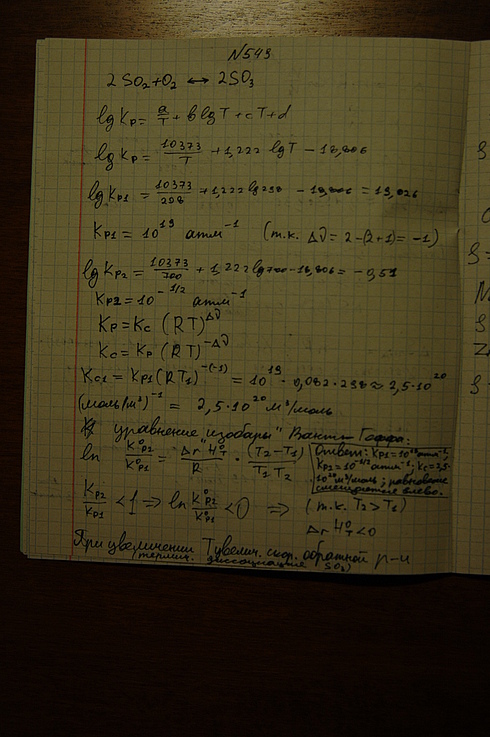 N549
2 SO₂+O₂ ↔ 2SO₃
lg Kp = a/T + b lg T + cT + d
lg Kp = 10373/T + 1,222 lg T − 18,806
lg Kp1 = 10373/298 + 1,222 lg 298 − 18,806 = 19,026
Kp1 = 10¹⁹ атм⁻¹ (т.к. Δν = 2−(2+1) = −1)
lg Kp2 = 10373/700 + 1,222 lg 700 − 18,806 = −0,51
Kp2 = 10^(−1/2) атм⁻¹
Kp = Kc (RT)^Δν
Kc = Kp (RT)^−Δν
Kc1 = Kp1 (RT₁)^−(−1) = 10¹⁹ · 0,082 · 298 ≈ 2,5·10²⁰
(моль/м³)⁻¹ = 2,5·10²⁰ м³/моль
уравнение изобары" Вант Гоффа:
ln K°p2/K°p1 = ΔrH°T/R · (T₂−T₁)/T₁T₂
Ответ: Kp1 = 10¹⁹ атм⁻¹;
Kp2 = 10^(−1/2) атм⁻¹; Kc = 2,5·
10²⁰ м³/моль; равновесие
смещается влево.
Kp2/Kp1 < 1 ⇒ ln K°p2/K°p1 < 0 ⇒ (т.к. T₂ > T₁)
ΔrH°T < 0
При увеличении T увелич. скор. обратной р-и
(термич. диссоциация SO₃)